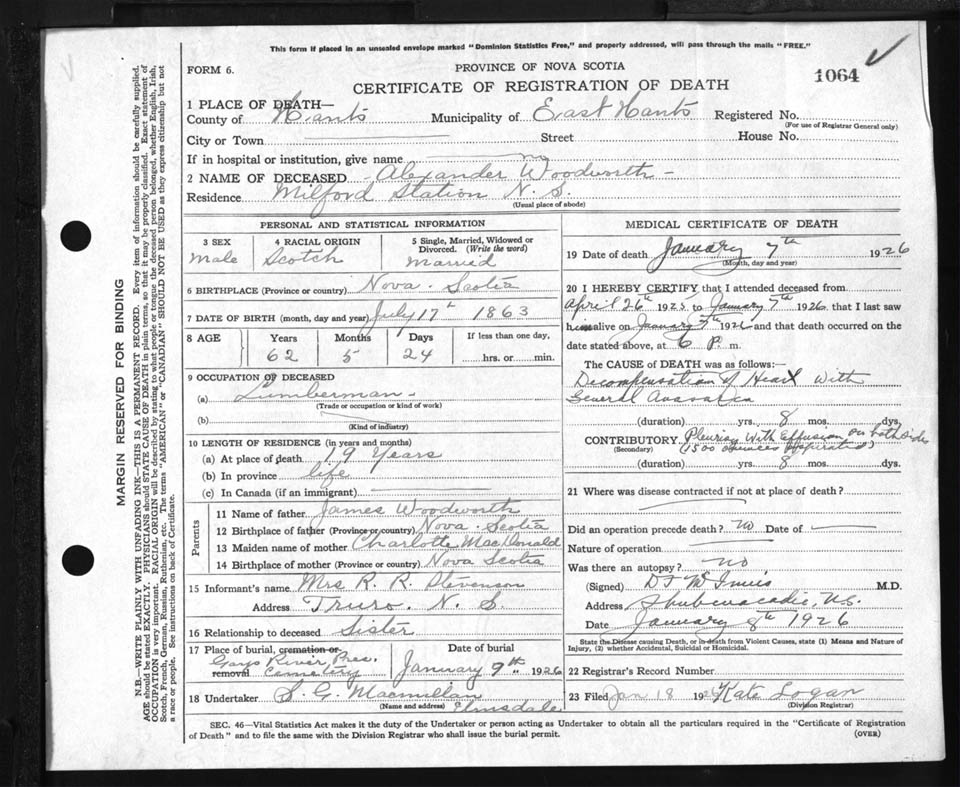 This form if placed in an unsealed envelope marked "Dominion Statistics Free," and properly addressed, will pass through the mails "FREE."
FORM 6.
PROVINCE OF NOVA SCOTIA
CERTIFICATE OF REGISTRATION OF DEATH
1064
MARGIN RESERVED FOR BINDING
N.B.—WRITE PLAINLY WITH UNFADING INK—THIS IS A PERMANENT RECORD. Every item of information should be carefully supplied.
AGE should be stated EXACTLY. PHYSICIANS should STATE CAUSE OF DEATH in plain terms, so that it may be properly classified. Exact statement of
OCCUPATION is very important. RACIAL ORIGIN will be described by stating to what people or tongue the deceased person belonged, whether English, Irish,
Scotch, French, German, Russian, Ruthenian, etc. The terms "AMERICAN" or "CANADIAN" SHOULD NOT BE USED as they express citizenship but not
a race or people. See instructions on back of Certificate.
1 PLACE OF DEATH—
County of Hants Municipality of East Hants Registered No.
(For use of Registrar General only)
City or Town Street House No.
If in hospital or institution, give name
2 NAME OF DECEASED Alexander Woodworth
Residence Milford Station N. S.
(Usual place of abode)
PERSONAL AND STATISTICAL INFORMATION
3 SEX
Male
4 RACIAL ORIGIN
Scotch
5 Single, Married, Widowed or
Divorced. (Write the word)
Married
6 BIRTHPLACE (Province or country) Nova Scotia
7 DATE OF BIRTH (month, day and year) July 17th 1863
8 AGE Years Months Days If less than one day,
62 5 24 hrs. or min.
9 OCCUPATION OF DECEASED
(a) Lumberman
(Trade or occupation or kind of work)
(b)
(Kind of industry)
10 LENGTH OF RESIDENCE (in years and months)
(a) At place of death 19 Years
(b) In province life
(c) In Canada (if an immigrant)
Parents
11 Name of father James Woodworth
12 Birthplace of father (Province or country) Nova Scotia
13 Maiden name of mother Charlotte MacDonald
14 Birthplace of mother (Province or country) Nova Scotia
15 Informant's name Mrs R. R. Stevenson
Address Truro. N. S.
16 Relationship to deceased Sister
17 Place of burial, cremation or
removal Gays River Pres. Cemetery
Date of burial
January 9th 1926
18 Undertaker S. G. Macmillan
(Name and address) Elmsdale
MEDICAL CERTIFICATE OF DEATH
19 Date of death January 7th 1926
(Month, day and year)
20 I HEREBY CERTIFY that I attended deceased from
April 26th 1925 to January 7th 1926 that I last saw
him alive on January 7th 1926 and that death occurred on the
date stated above, at 6 P. m.
The CAUSE OF DEATH was as follows:
Decompensation of Heart with
General Anasarca
(duration) yrs. 8 mos. dys.
CONTRIBUTORY Pleurisy with Effusion on both sides
(Secondary) (1500 ounces aspirated)
(duration) yrs. 8 mos. dys.
21 Where was disease contracted if not at place of death?
Did an operation precede death? no Date of
Nature of operation
Was there an autopsy? no
(Signed) D F McInnis M.D.
Address Shubenacadie, N.S.
Date January 8th 1926
State the Disease causing Death, or in death from Violent Causes, state (1) Means and Nature of
Injury, (2) whether Accidental, Suicidal or Homicidal.
22 Registrar's Record Number
23 Filed Jan 18 192 Kate Logan
(Division Registrar)
SEC. 46—Vital Statistics Act makes it the duty of the Undertaker or person acting as Undertaker to obtain all the particulars required in the "Certificate of Registration
of Death" and to file the same with the Division Registrar who shall issue the burial permit. (OVER)